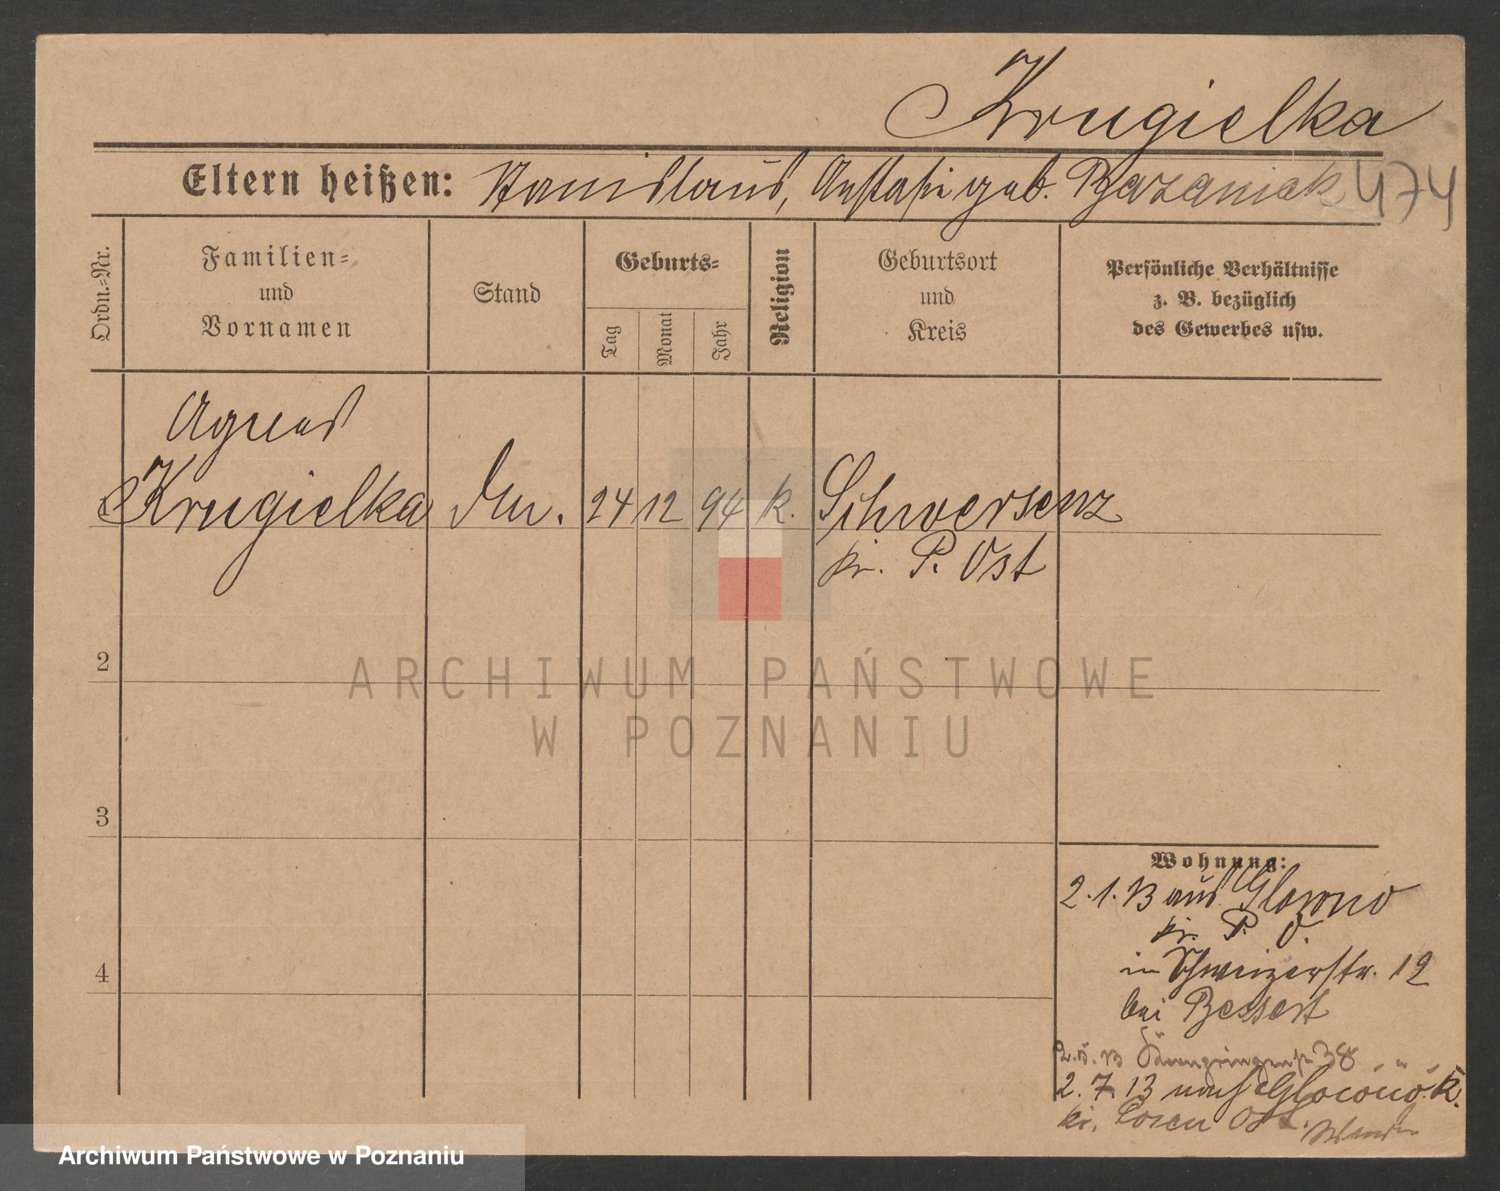 Krugielka
Eltern heißen: Stanislaus, Anstasie geb. Bazaniak 474
Ordn.-Nr.
Familien- und Vornamen
Stand
Geburts-
Tag
Monat
Jahr
Religion
Geburtsort und Kreis
Persönliche Verhältnisse
z. B. bezüglich
des Gewerbes usw.
Agnes
Krugielka 24 12 94 k. Schwersenz
kr. P. Ost
2
3
4
Wohnung:
2.1.13 aus Glowno
kr. P. O.
in Schweizerstr. 12
bei Bessert
38
2.7.13 nach
kr. Posen Ost.
ARCHIWUM PAŃSTWOWE
W POZNANIU
Archiwum Państwowe w Poznaniu